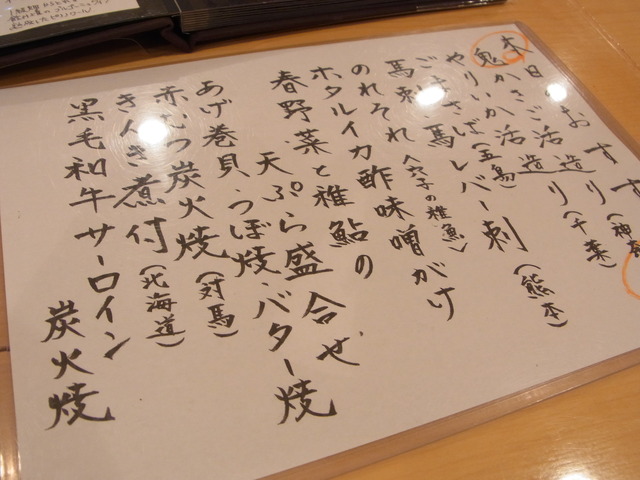 鬼かさご活造り(神奈
やりいか活造り(千葉)
ごまさば(五島)
馬刺・馬レバー刺(熊本)
のれそれ(穴子の稚魚)
ホタルイカ酢味噌がけ
春野菜と稚鮎の
天ぷら盛合せ
あげ巻貝・つぼ焼・バター焼
赤むつ炭火焼(対馬)
きんき煮付(北海道)
黒毛和牛サーロイン
炭火焼